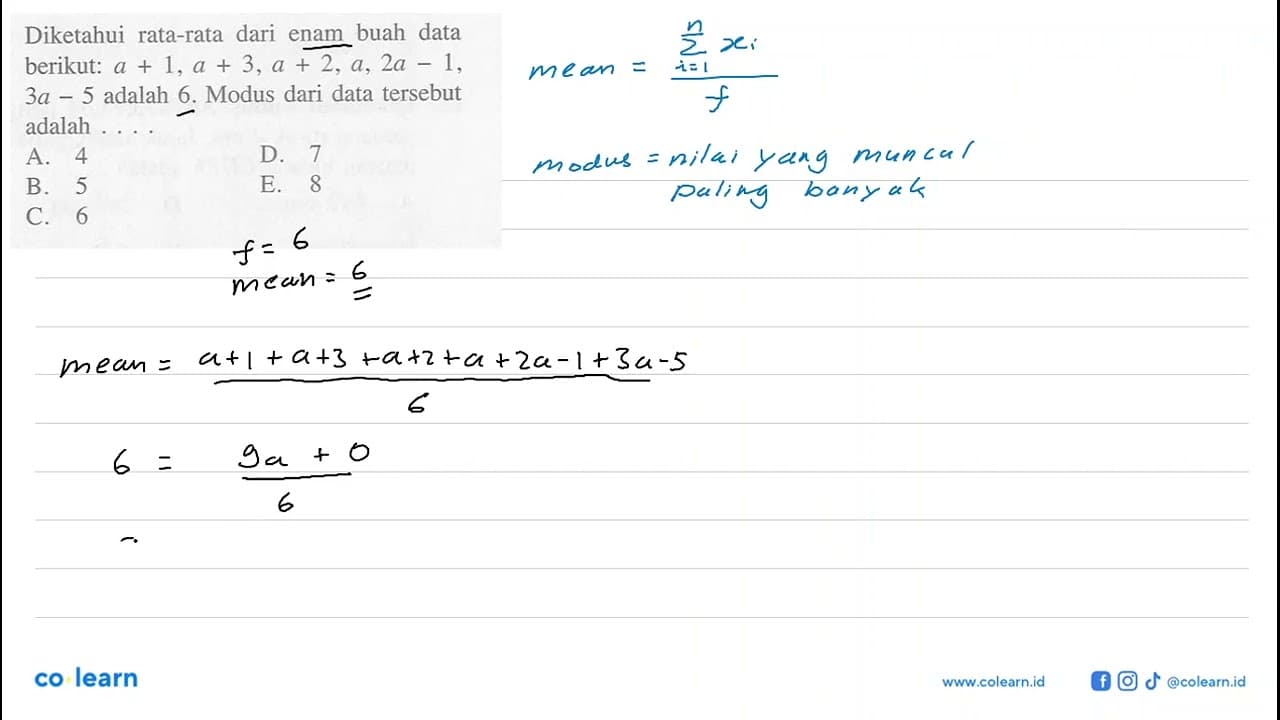 Diketahui rata-rata dari enam buah data
berikut: a + 1, a + 3, a + 2, a, 2a − 1,
3a − 5 adalah 6. Modus dari data tersebut
adalah . . . .
A. 4
B. 5
C. 6
D. 7
E. 8
mean = n Σ i=1 xi / f
modus = nilai yang muncul
paling banyak
f = 6
mean = 6
mean = a+1 + a+3 +a+2 +a +2a-1+3a-5
6
6 = 9a + 0
6
co learn
www.colearn.id
@colearn.id